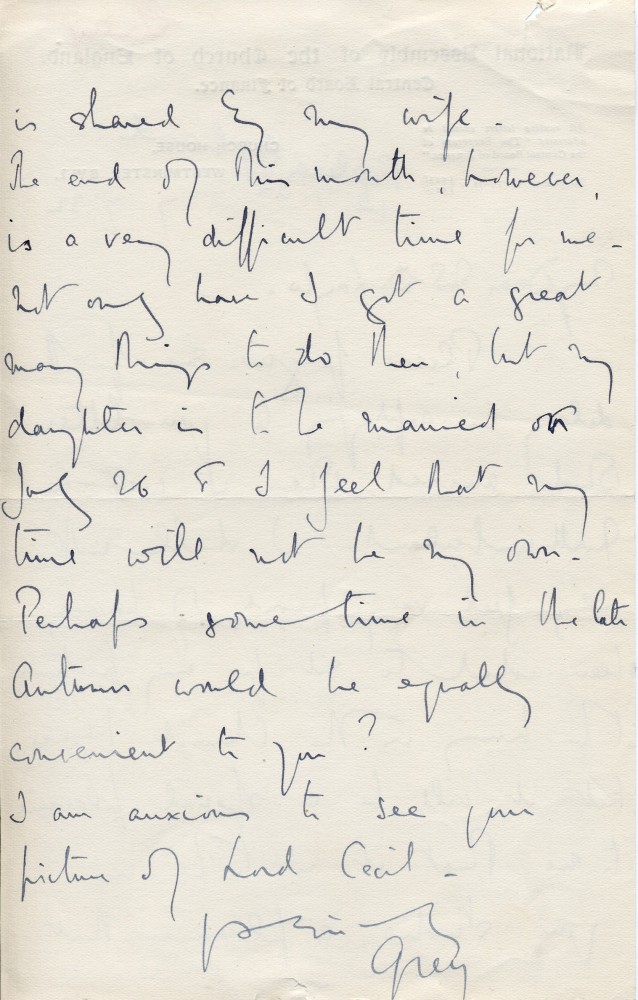 is shared by my wife.
The end of this month, however,
is a very difficult time for me.
Not only have I got a great
many things to do then, but my
daughter is to be married on
July 26 & I feel that my
time will not be my own.
Perhaps some time in the late
Autumn would be equally
convenient to you?
I am anxious to see your
picture of Lord Cecil.
Grey